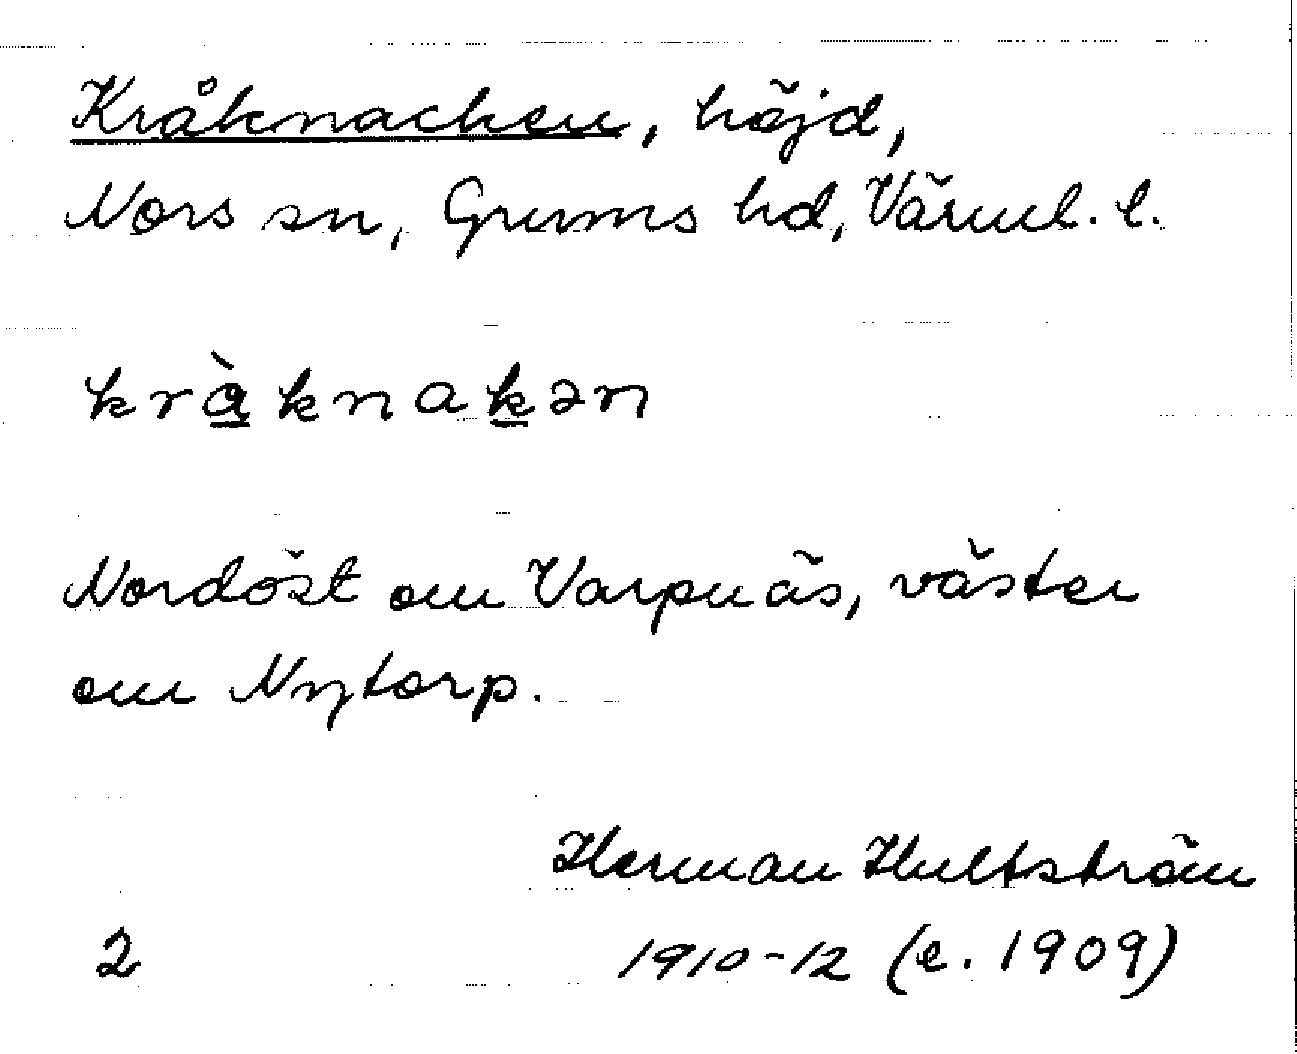 Kråknacken, höjd,
Nors sn, Grums hd, Värml. l.
kràknakən
Nordöst om Varpnäs, väster
om Nytorp.
Herman Hultström
2 1910-12 (e. 1909)